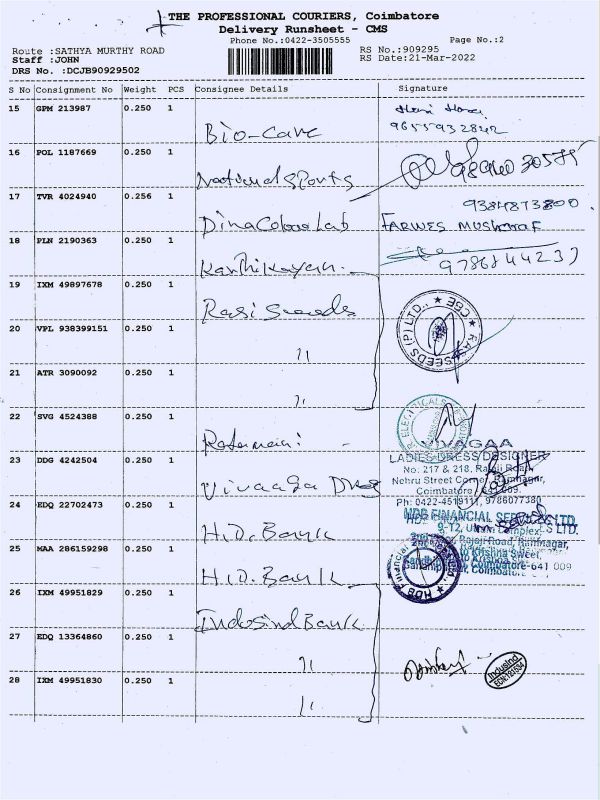 THE PROFESSIONAL COURIERS, Coimbatore
Delivery Runsheet - CMS
Phone No.:0422-3505555
Page No.:2
Route :SATHYA MURTHY ROAD
RS No.:909295
Staff :JOHN
RS Date:21-Mar-2022
DRS No. :DCJB90929502
S No Consignment No Weight PCS Consignee Details Signature
15 GPM 213987 0.250 1
Bio-Care 9655932842
16 POL 1187669 0.250 1
National Sports
17 TVR 4024940 0.256 1
9384873800
Dina Colour Lab FARWES MUSHARAF
18 PLN 2190363 0.250 1
Karthikayan 9786844237
19 IXM 49897678 0.250 1
Rasi Seeds
RASI SEEDS (P) LTD., ★ CBE ★
20 VPL 938399151 0.250 1
"
21 ATR 3090092 0.250 1
"
22 SVG 4524388 0.250 1
ELECTRICALS
23 DDG 4242504 0.250 1
VIVAGAA
LADIES DRESS DESIGNER
No: 217 & 218, Rajaji Road,
Nehru Street Corner, Ramnagar,
Coimbatore - 641 009.
Ph: 0422-4519111, 9786077380
Vivaaga Dres
24 EDQ 22702473 0.250 1
HDB FINANCIAL SERVICES LTD.
9-T2, Complex,
Rajaji Road, Ramnagar,
Krishna Sweet,
Gandhipuram, Coimbatore-641 009
H.D. Bank
25 MAA 286159298 0.250 1
H.D. Bank
HDB Financial
26 IXM 49951829 0.250 1
Indosind Bank
27 EDQ 13364860 0.250 1
"
IndusInd
28 IXM 49951830 0.250 1
"